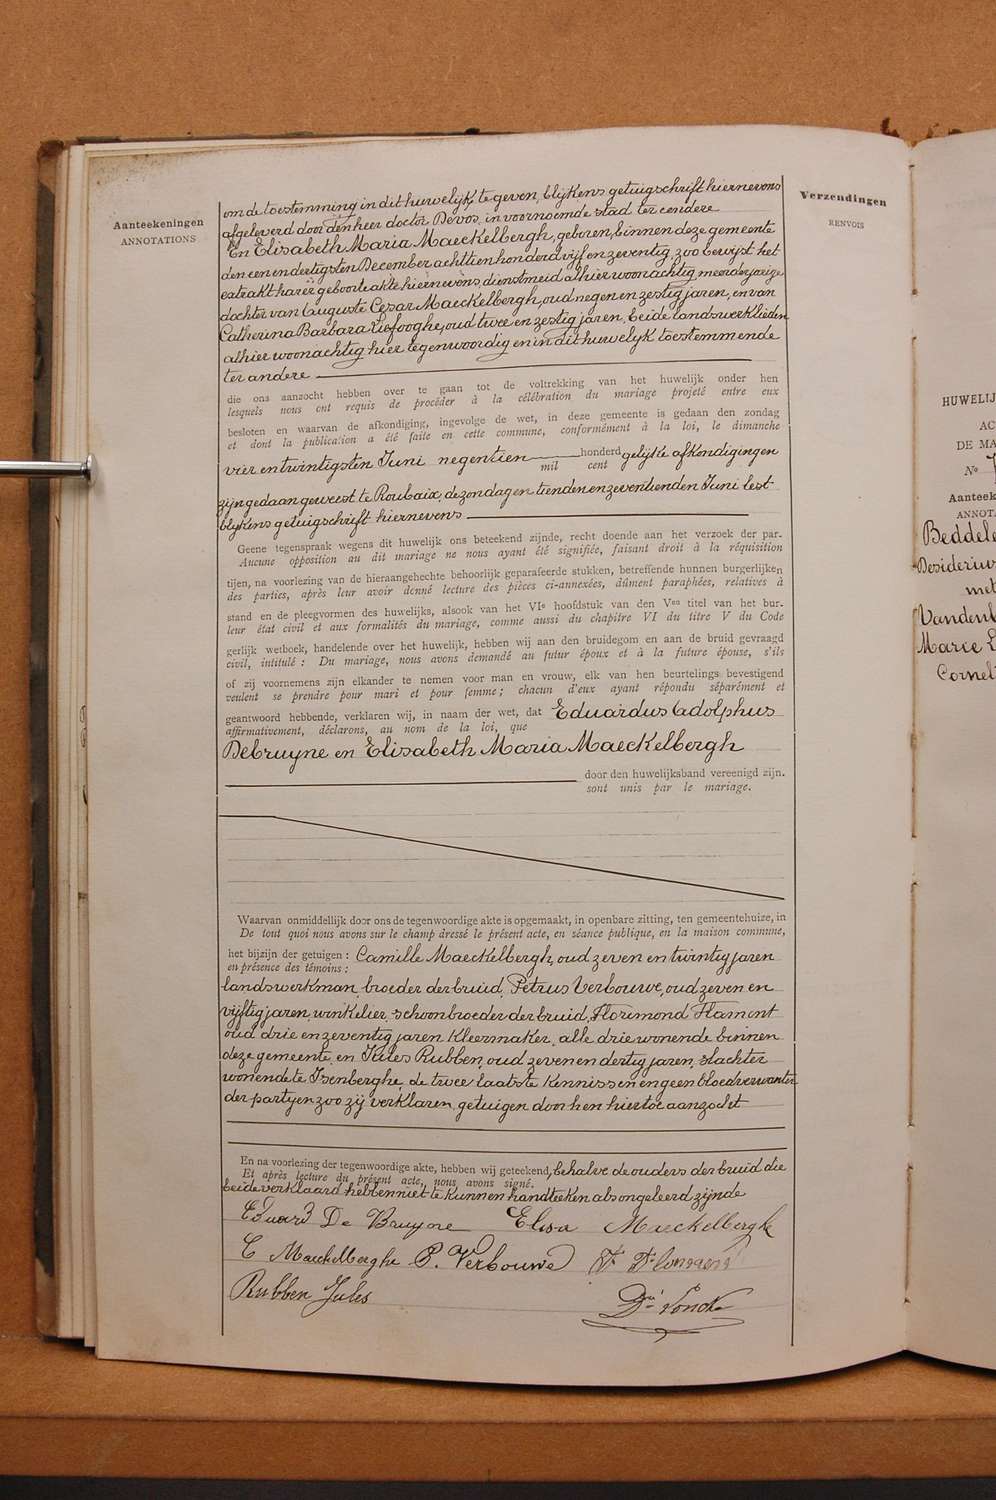 Aanteekeningen
ANNOTATIONS
Verzendingen
RENVOIS
om de toestemming in dit huwelijk te geven, blijkens getuigschrift hiernevens
afgeleverd door den heer doctor Devos, in voornoemde stad ter eendere
En Elisabeth Maria Maeckelbergh, geboren binnen deze gemeente
den een en dertigsten December achttien honderd vijf en zeventig, zoo bewijst het
extrakt harer geboorteakte hiernevens, dienstmeid alhier woonachtig, meerderjarige
dochter van Auguste Cesar Maeckelbergh, oud negen en zestig jaren, en van
Catherina Barbara Liefooghe, oud twee en zestig jaren, beide landswerklieden
alhier woonachtig hier tegenwoordig en in dit huwelyk toestemmende
ter andere
die ons aanzocht hebben over te gaan tot de voltrekking van het huwelijk onder hen
lesquels nous ont requis de procéder à la célébration du mariage projeté entre eux
besloten en waarvan de afkondiging, ingevolge de wet, in deze gemeente is gedaan den zondag
et dont la publication a été faite en cette commune, conformément à la loi, le dimanche
vier en twintigsten Juni negentien honderd gelijke afkondigingen
mil cent
zijn gedaan geweest te Roubaix, de zondagen tienden en zeventienden Juni lest
blijkens getuigschrift hiernevens
Geene tegenspraak wegens dit huwelijk ons beteekend zijnde, recht doende aan het verzoek der par.
Aucune opposition au dit mariage ne nous ayant été signifiée, faisant droit à la réquisition
tijen, na voorlezing van de hieraangehechte behoorlijk geparafeerde stukken, betreffende hunnen burgerlijken
des parties, après leur avoir donné lecture des pièces ci-annexées, dûment paraphées, relatives à
stand en de pleegvormen des huwelijks, alsook van het VIe hoofdstuk van den Ven titel van het bur.
leur état civil et aux formalités du mariage, comme aussi du chapitre VI du titre V du Code
gerlijk wetboek, handelende over het huwelijk, hebben wij aan den bruidegom en aan de bruid gevraagd
civil, intitulé : Du mariage, nous avons demandé au futur époux et à la future épouse, s'ils
of zij voornemens zijn elkander te nemen voor man en vrouw, elk van hen beurtelings bevestigend
veulent se prendre pour mari et pour femme ; chacun d'eux ayant répondu séparément et
geantwoord hebbende, verklaren wij, in naam der wet, dat Eduardus Adolphus
affirmativement, déclarons, au nom de la loi, que
Debruyne en Elisabeth Maria Maeckelbergh
door den huwelijksband vereenigd zijn.
sont unis par le mariage.
Waarvan onmiddellijk door ons de tegenwoordige akte is opgemaakt, in openbare zitting, ten gemeentehuize, in
De tout quoi nous avons sur le champ dressé le présent acte, en séance publique, en la maison commune,
het bijzijn der getuigen : Camille Maeckelbergh, oud zeven en twintig jaren
en présence des témoins :
landswerkman, broeder der bruid, Petrus Verbouwe, oud zeven en
vijftig jaren, winkelier, schoonbroeder der bruid, Florimond Flament
oud drie en zeventig jaren Kleermaker, alle drie wonende binnen
deze gemeente, en Jules Rubben, oud zeven en dertig jaren, slachter
wonende te Isenberghe, de twee laatste kennissen en geen bloedverwanten
der partyen zoo zij verklaren, getuigen door hen hiertoe aanzocht
En na voorlezing der tegenwoordige akte, hebben wij geteekend, behalve de ouders der bruid die
Et après lecture du présent acte, nous avons signé.
beide verklaard hebben niet te kunnen handteeken als ongeleerd zijnde
Eduard De Bruyne Elisa Maeckelbergh
C Maeckelberghe P. Verbouwe
Rubben Jules
HUWELIJ
AC
DE MA
No
Aanteek
ANNOTA
Beddele
Desiderius
met
Vandenb
Marie L
Cornel